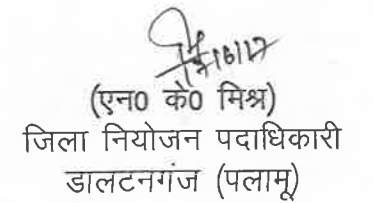 (एन0 के0 मिश्र)
जिला नियोजन पदाधिकारी
डालटनगंज (पलामू)